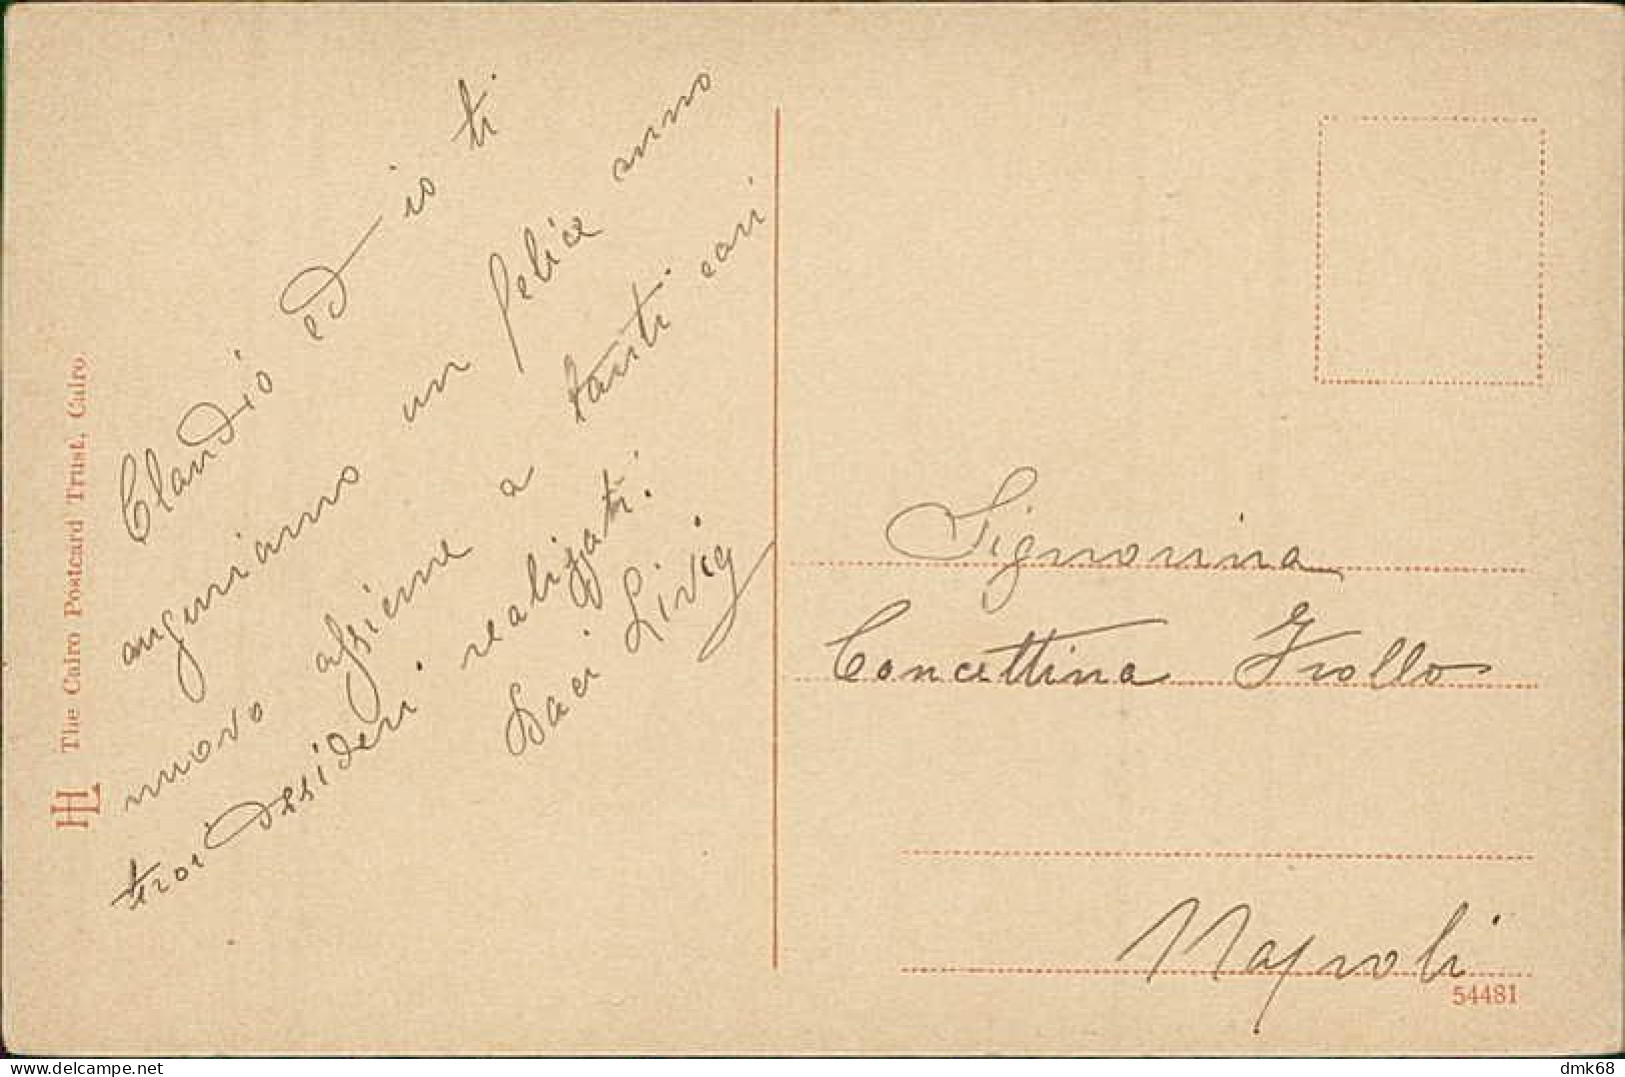 Claudio ed io ti
auguriamo un felice anno
nuovo assieme a tanti cari
tuoi dessideri realizzati.
Baci Livia
Signorina
Concettina Frollo
Napoli
54481
HL The Cairo Postcard Trust, Cairo.
delcampe.net
dmk68